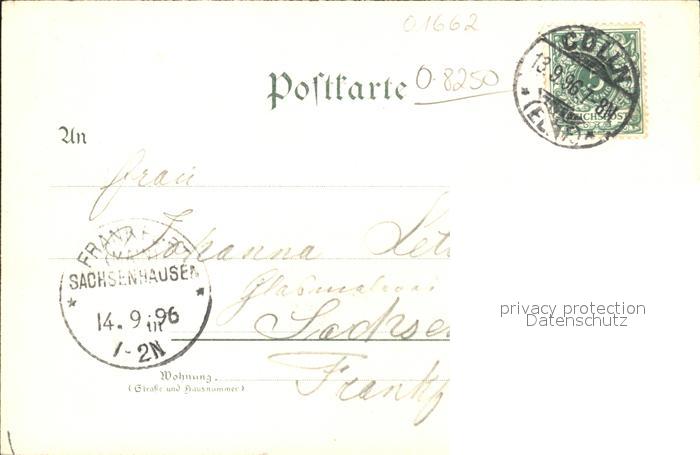 01662
Postkarte 0-8250
CÖLLN
13.9.96 7-8N
(ELBE)
REICHSPOST
An
Frau
Johanna
Glasmalerei
Sachsen
Frankf
FRANKFURT
(MAIN)
SACHSENHAUSEN
14.9.96
1-2N
Wohnung
(Straße und Hausnummer)
privacy protection
Datenschutz